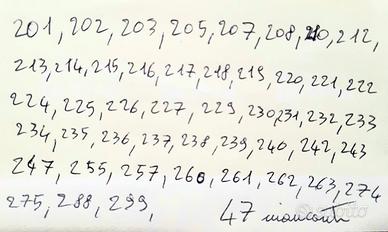 201, 202, 203, 205, 207, 208, 210, 212,
213, 214, 215, 216, 217, 218, 219, 220, 221, 222
224, 225, 226, 227, 229, 230, 231, 232, 233
234, 235, 236, 237, 238, 239, 240, 242, 243
247, 255, 257, 260, 261, 262, 263, 274
275, 288, 299, 47 mancanti
subito